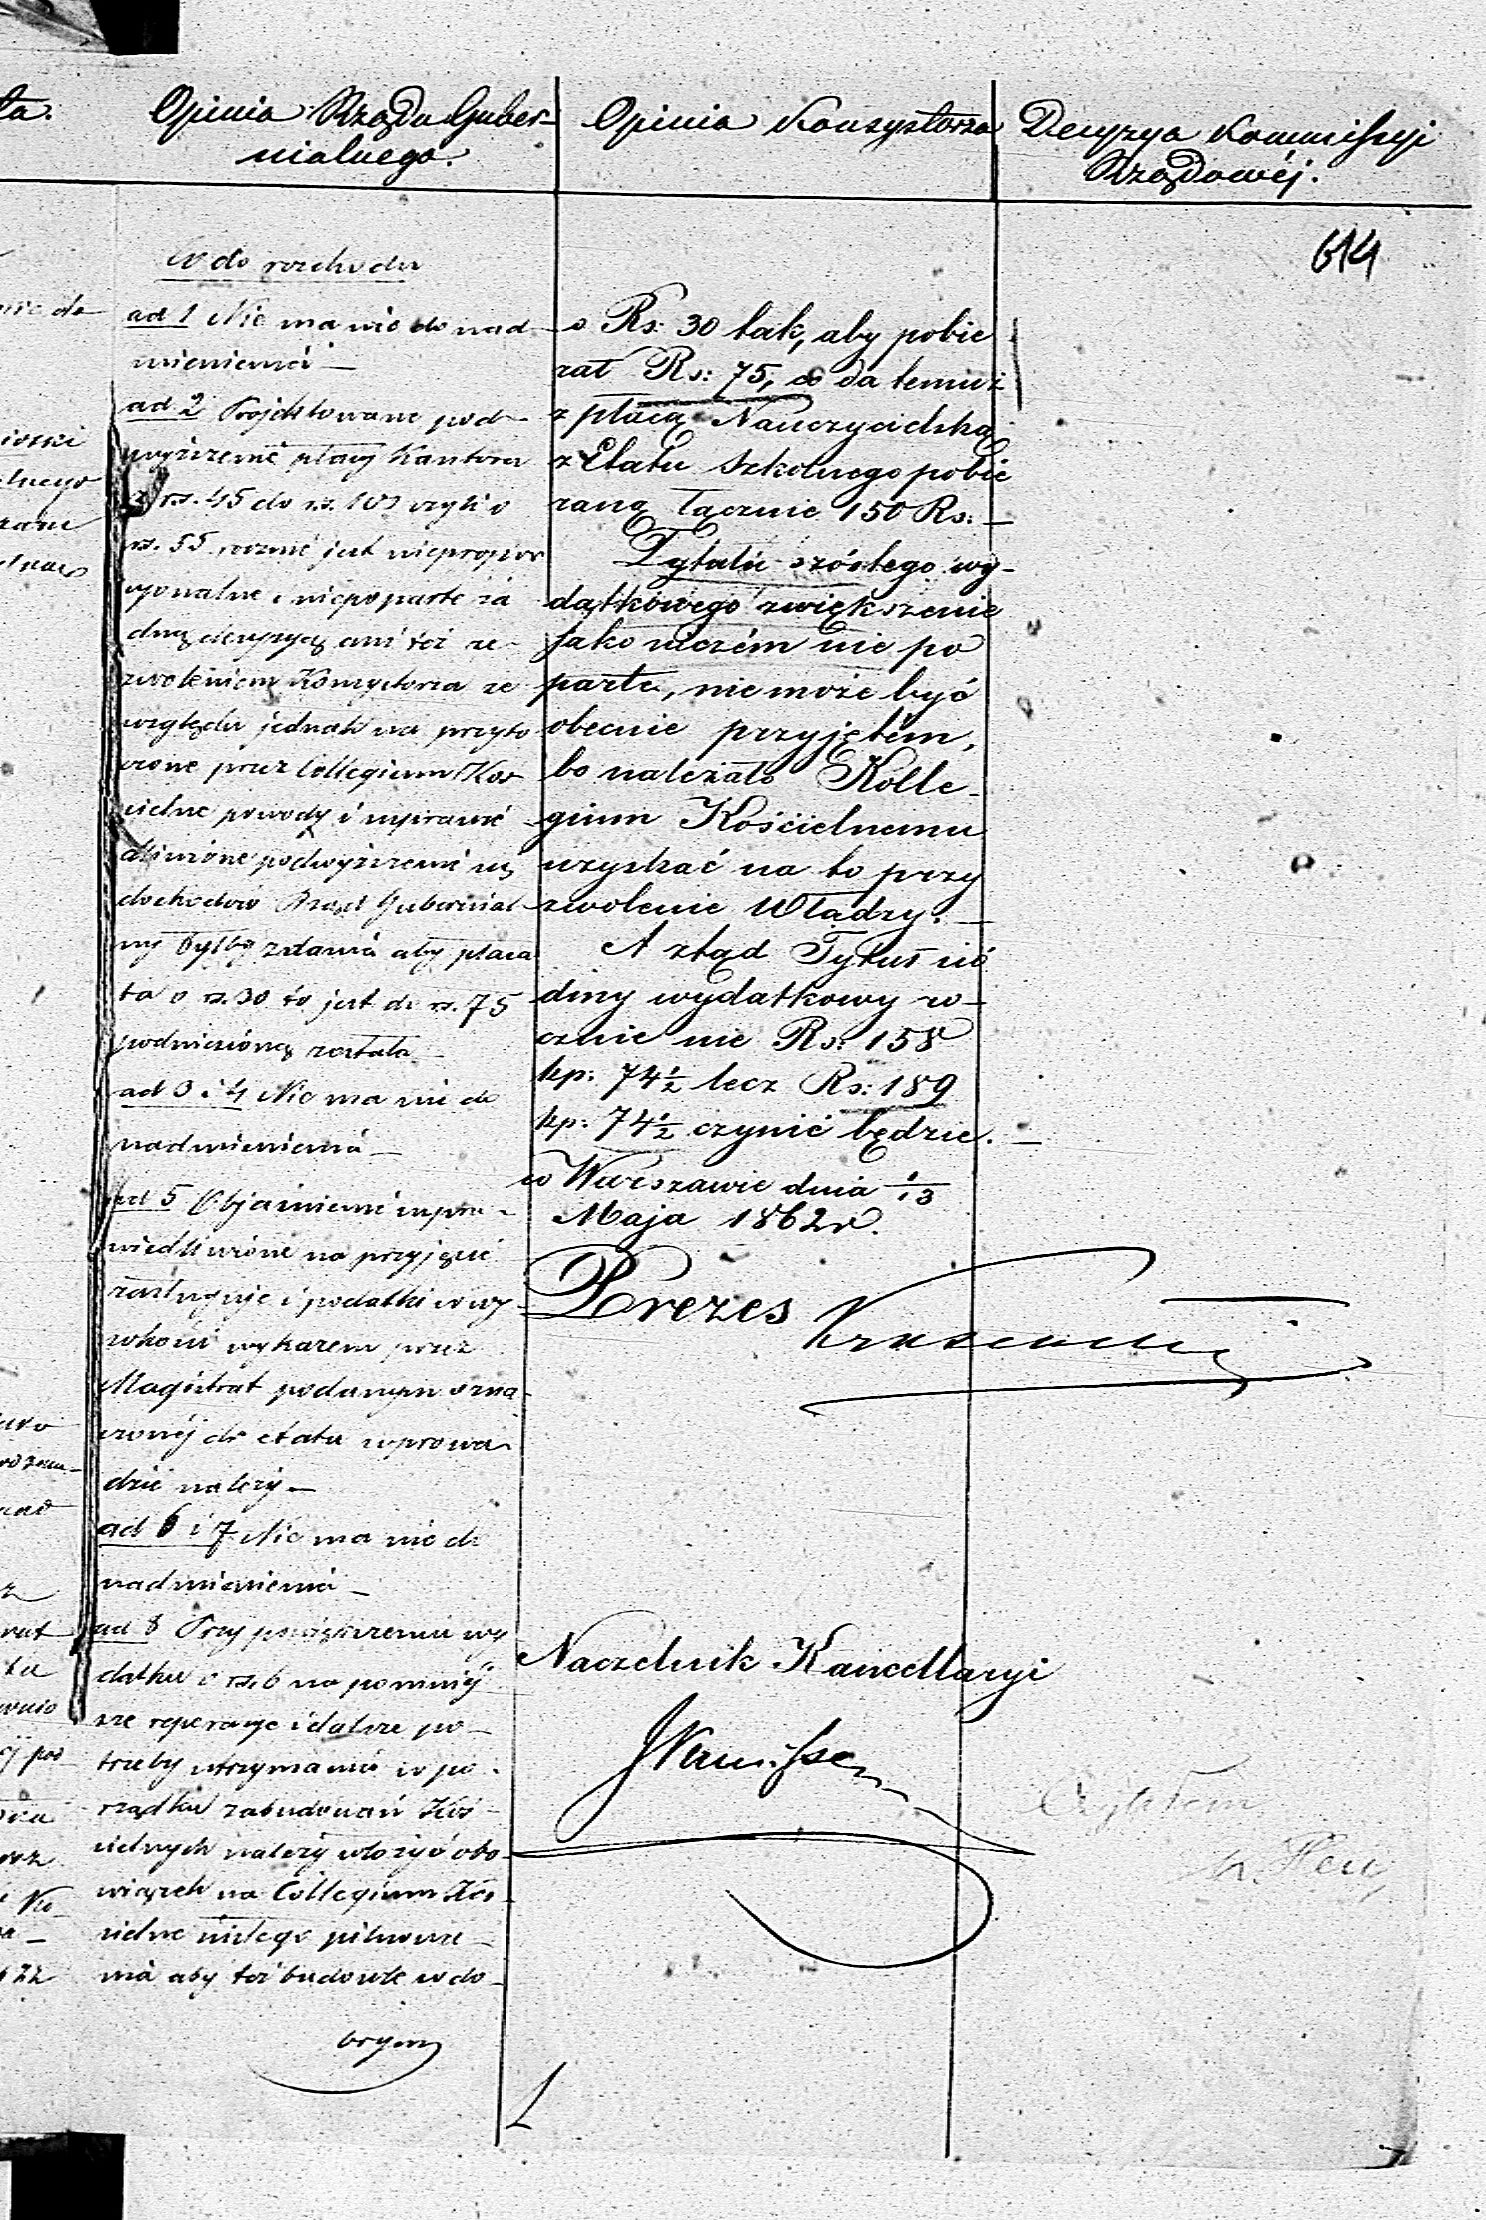 Opinia Rządu Guber-
nialnego.
Co do rozchodu
ad 1 Nic ma nic do nad-
mienienia —
ad 2 Projektowane pod-
wyższenie płacy Kantora
z rs. 45 do rs. 100 czyli o
rs. 55 rocznie jest niepropor
cyonalne i niepoparte ża
dną decyzyą ani też ze-
zwoleniem Konsystorza ze
względu jednak na przyto
czone przez Collegium Koś
cielne powody i usprawie
dliwione podwyższenie się
dochodów Rząd Gubernial-
ny byłby zdania aby płaca
ta o rs. 30 to jest do rs. 75
podniesioną została —
ad 3 i 4 Nic ma nic do
nadmienienia —
ad 5 Objaśnienie uspra-
wiedliwione na przyjęcie
zasługuje i podatki w wy-
sokości wykazem przez
Magistrat podanym ozna-
czonéj do etatu wprowa-
dzić należy —
ad 6 i 7 Nic ma nic do
nadmienienia —
ad 8 Przy powiększeniu wy
datku o rs. 6 na pomniej
sze reperacye i dalsze po-
trzeby utrzymania w po-
rządku zabudowań Koś-
cielnych należy włożyć obo-
wiązek na Collegium Koś-
cielne pilnowa-
nia aby też budowle w do-
brym
Opinia Konsystorza
o Rs: 30 tak, aby pobie
rał Rs: 75, co da temuż
z płacą Nauczycielską
z Etatu Szkolnego pobie
raną łącznie 150 Rs: —
Tytułu szóstego wy-
datkowego zwiększenie
jako niczém nie po
parte, nie może być
obecnie przyjętém,
bo należało Kolle-
gium Kościelnemu
uzyskać na to przy
zwolenie Władzy. —
A ztąd Tytuł siό
dmy wydatkowy ro-
cznie nie Rs: 158
kp: 74½ lecz Rs: 189
kp: 74½ czynić będzie. —
w Warszawie dnia 1/13
Maja 1862 r.
Prezes
Naczelnik Kancellaryi
Decyzya Kommissyi
Rządowéj.
614
Czytałem